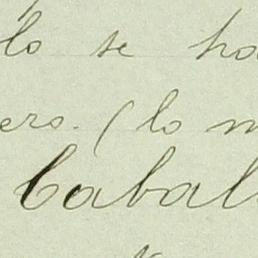 lo se ha
ero. (lo m
Cabal